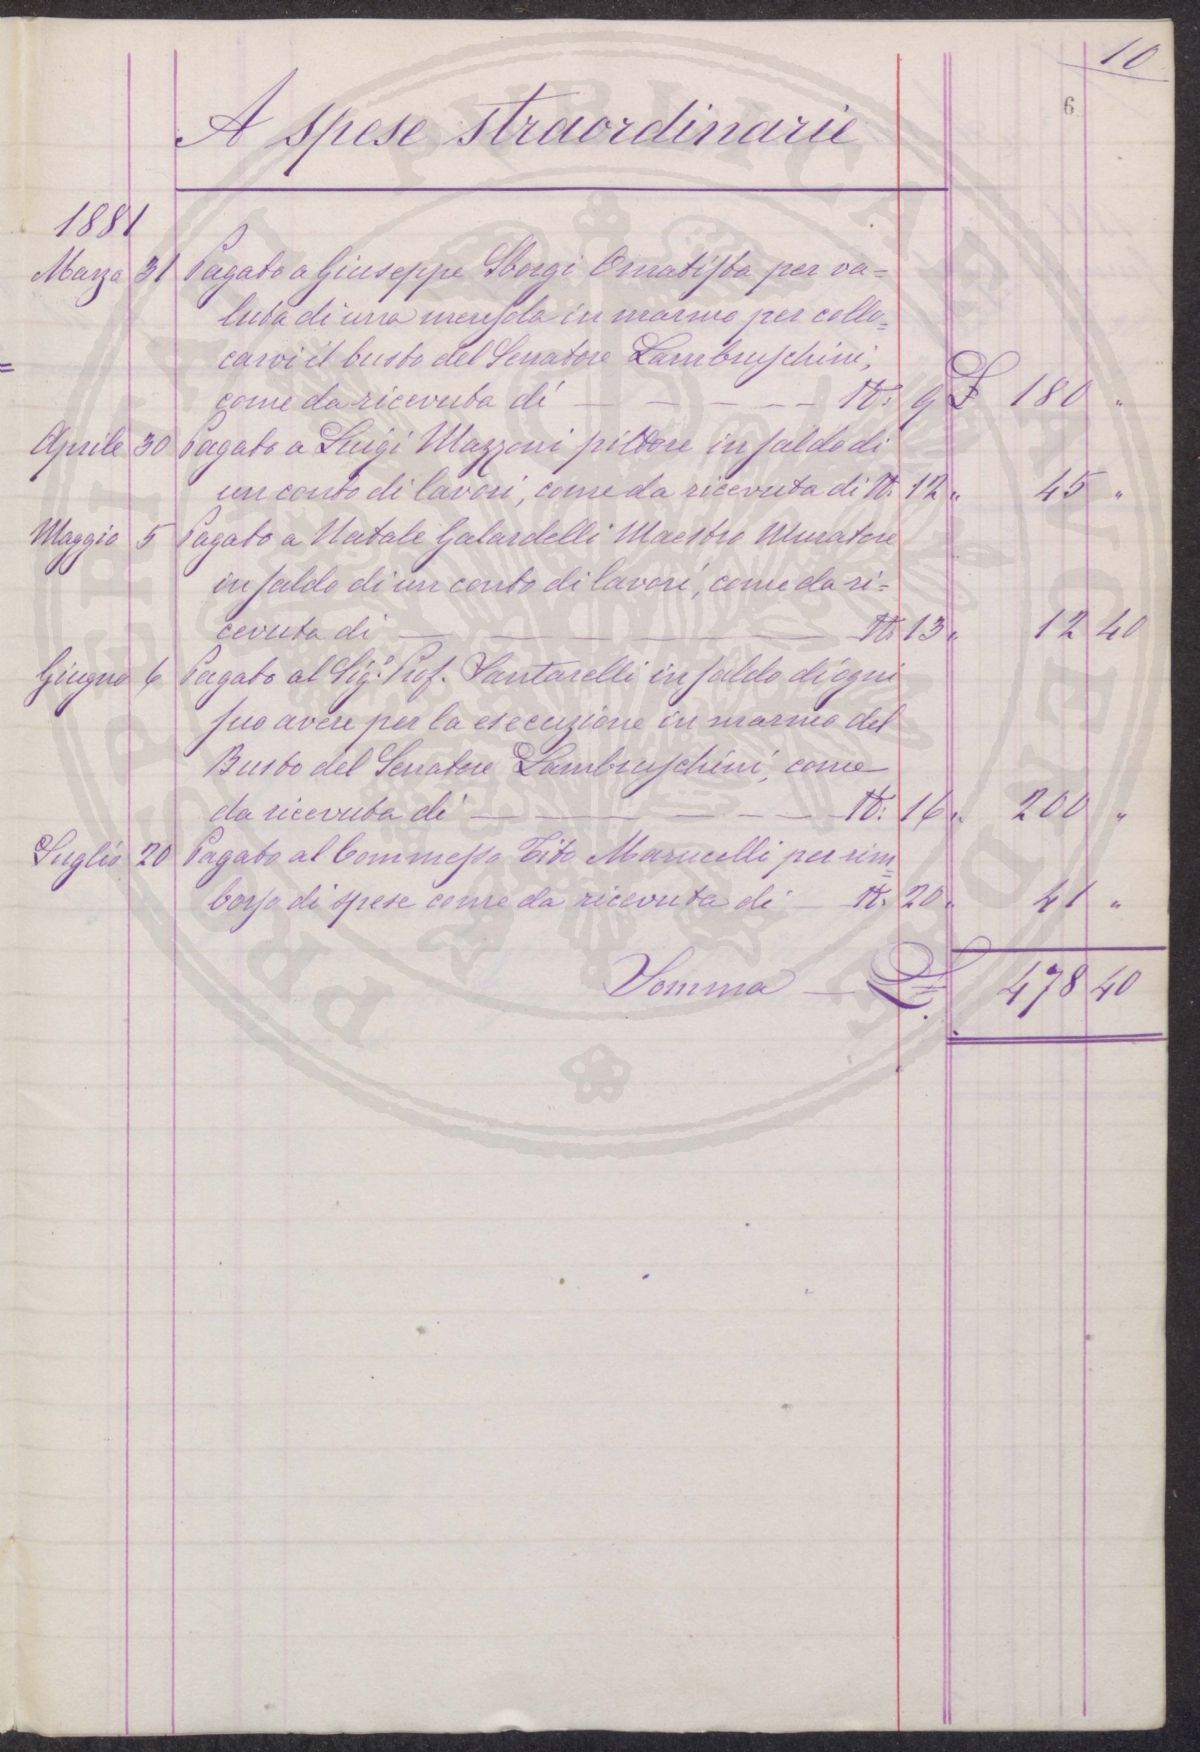 10
6
A spese straordinarie
1881
Marzo 31 Pagato a Giuseppe Sborgi Ornatista per va=
luta di una mensola in marmo per collo=
carvi il busto del Senatore Lambruschini,
come da ricevuta di — — — — — N: 9 £ 180 "
Aprile 30 Pagato a Luigi Mazzoni pittore in saldo di
un conto di lavori, come da ricevuta di N. 12 " 45 "
Maggio 5 Pagato a Natale Galardelli Maestro Muratore
in saldo di un conto di lavori, come da ri=
cevuta di — — — — N. 13 " 12 40
Giugno 6 Pagato al Sig.r Prof. Santarelli in saldo d'ogni
suo avere per la esecuzione in marmo del
Busto del Senatore Lambruschini, come
da ricevuta di — — — — — — N: 16 " 200 "
Luglio 20 Pagato al Commesso Tito Marucelli per rim=
borso di spese come da ricevuta di — N. 20 " 41 "
Somma — £ 478 40
PRINCIPI PUBLICAE